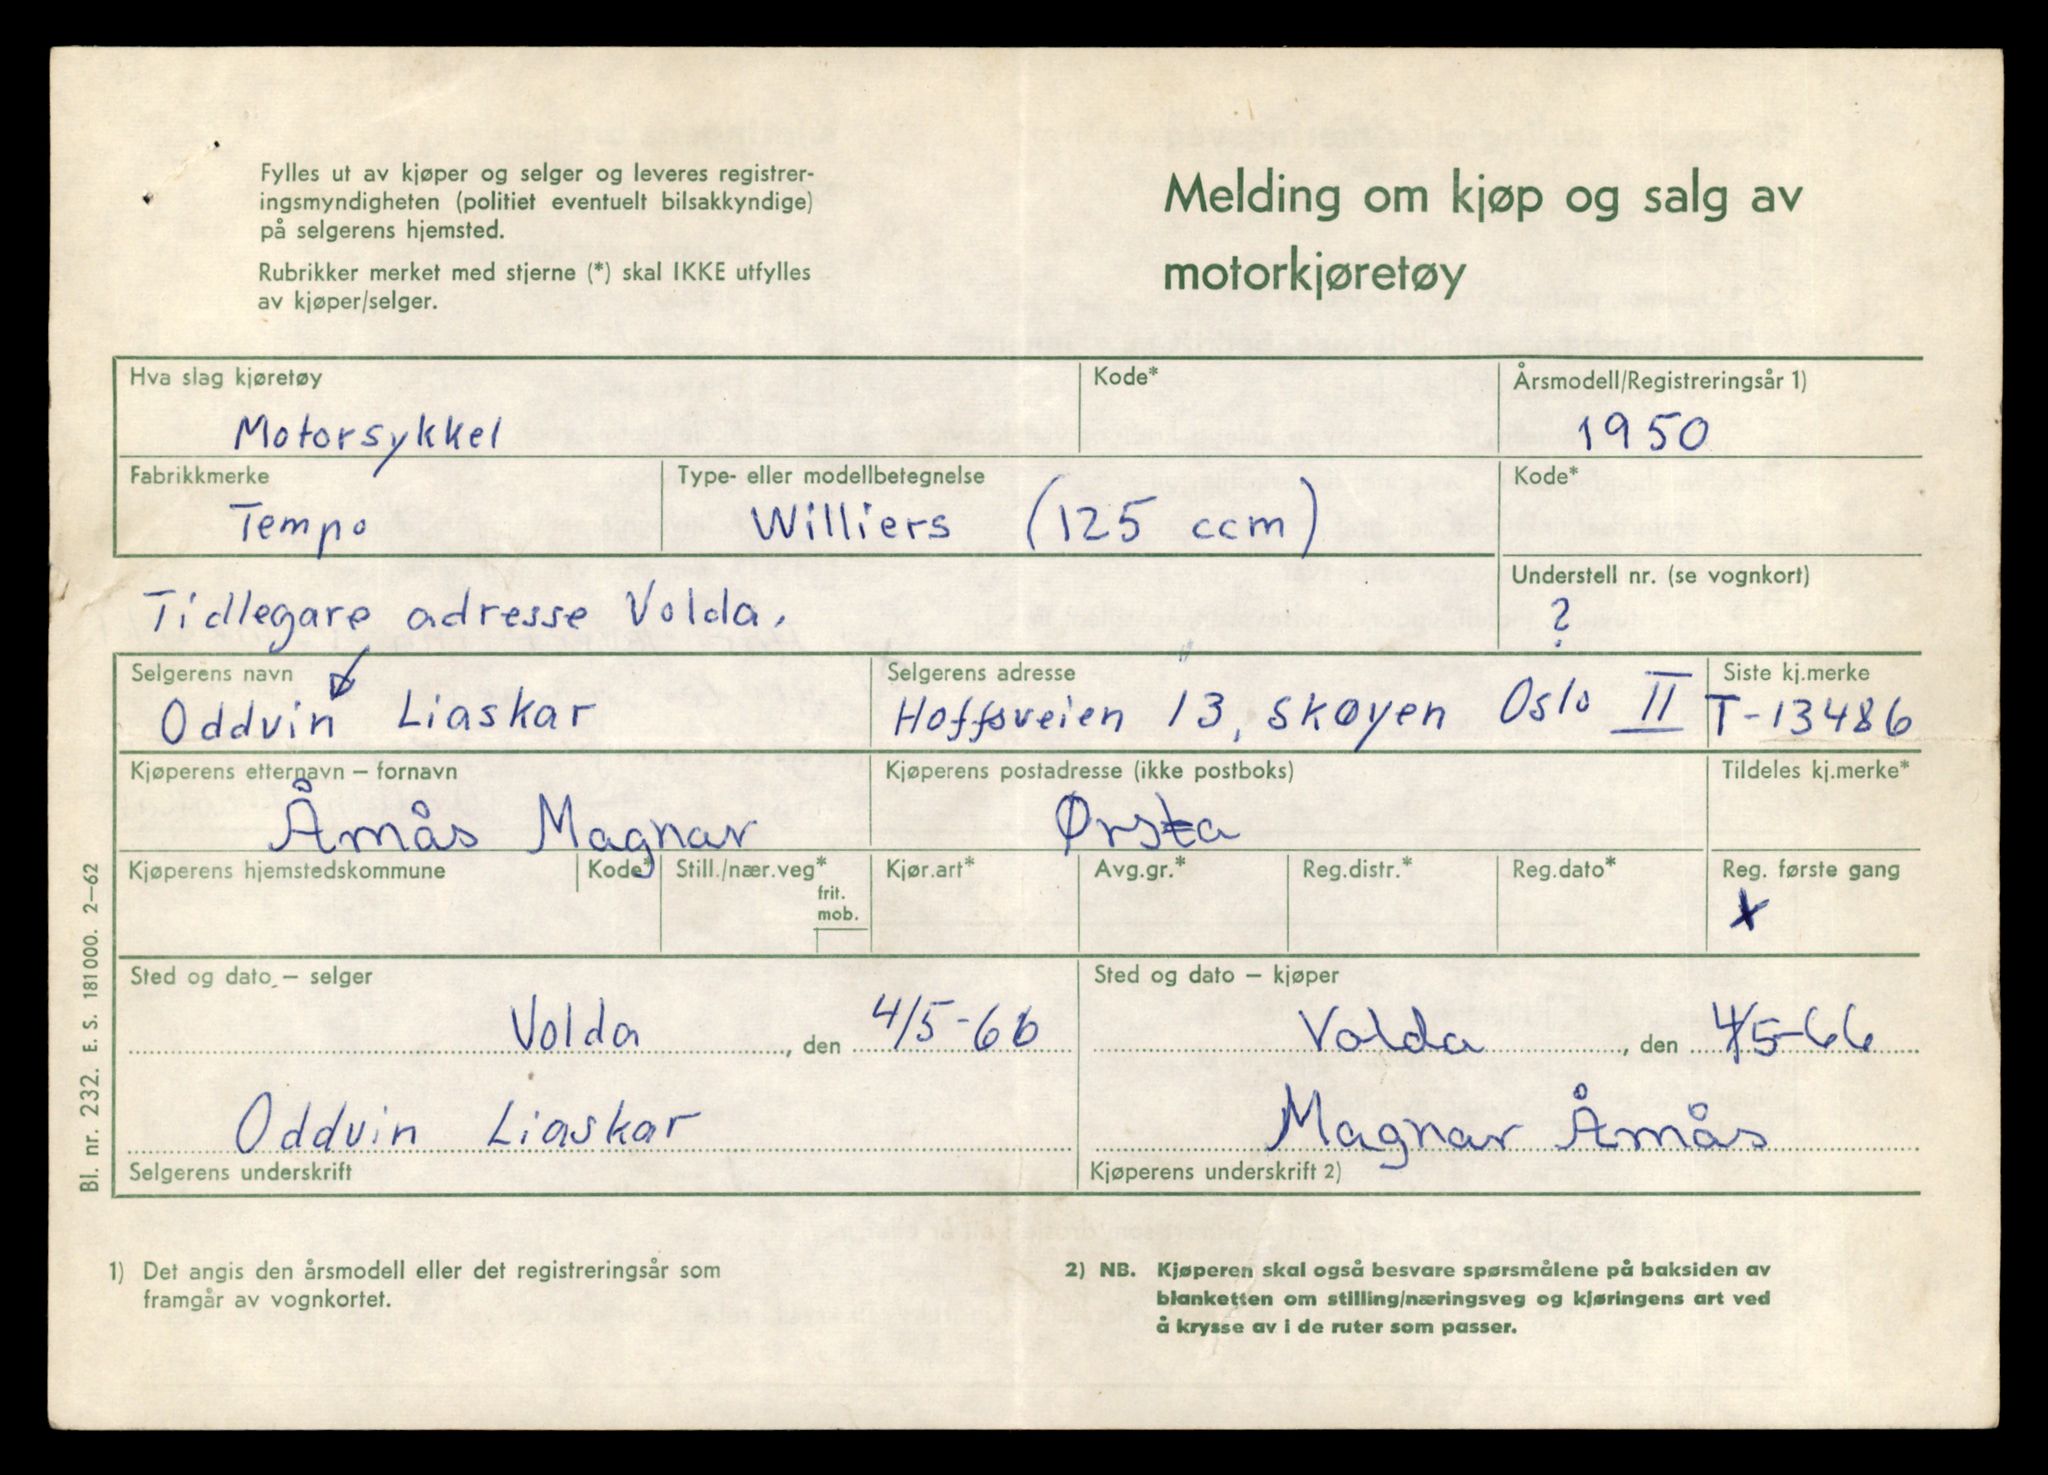 Fylles ut av kjøper og selger og leveres registrer-
ingsmyndigheten (politiet eventuelt bilsakkyndige)
på selgerens hjemsted.
Rubrikker merket med stjerne (*) skal IKKE utfylles
av kjøper/selger.
Melding om kjøp og salg av
motorkjøretøy
Hva slag kjøretøy
Motorsykkel
Kode*
Årsmodell/Registreringsår 1)
1950
Fabrikkmerke
Tempo
Type- eller modellbetegnelse
Williers (125 ccm)
Kode*
Tidlegare adresse Volda.
Understell nr. (se vognkort)
?
Selgerens navn
Oddvin Liaskar
Selgerens adresse
Hoffsveien 13, Skøyen Oslo II
Siste kj.merke
T-13486
Kjøperens etternavn – fornavn
Åmås Magnar
Kjøperens postadresse (ikke postboks)
Ørsta
Tildeles kj.merke*
Kjøperens hjemstedskommune
Kode*
Still./nær.veg*
frit.
mob.
Kjør.art*
Avg.gr.*
Reg.distr.*
Reg.dato*
Reg. første gang
x
Sted og dato – selger
Volda, den 4/5-66
Sted og dato – kjøper
Volda, den 4/5-66
Oddvin Liaskar
Selgerens underskrift
Magnar Åmås
Kjøperens underskrift 2)
Bl. nr. 232. E. S. 181000. 2–62
1) Det angis den årsmodell eller det registreringsår som
framgår av vognkortet.
2) NB. Kjøperen skal også besvare spørsmålene på baksiden av
blanketten om stilling/næringsveg og kjøringens art ved
å krysse av i de ruter som passer.